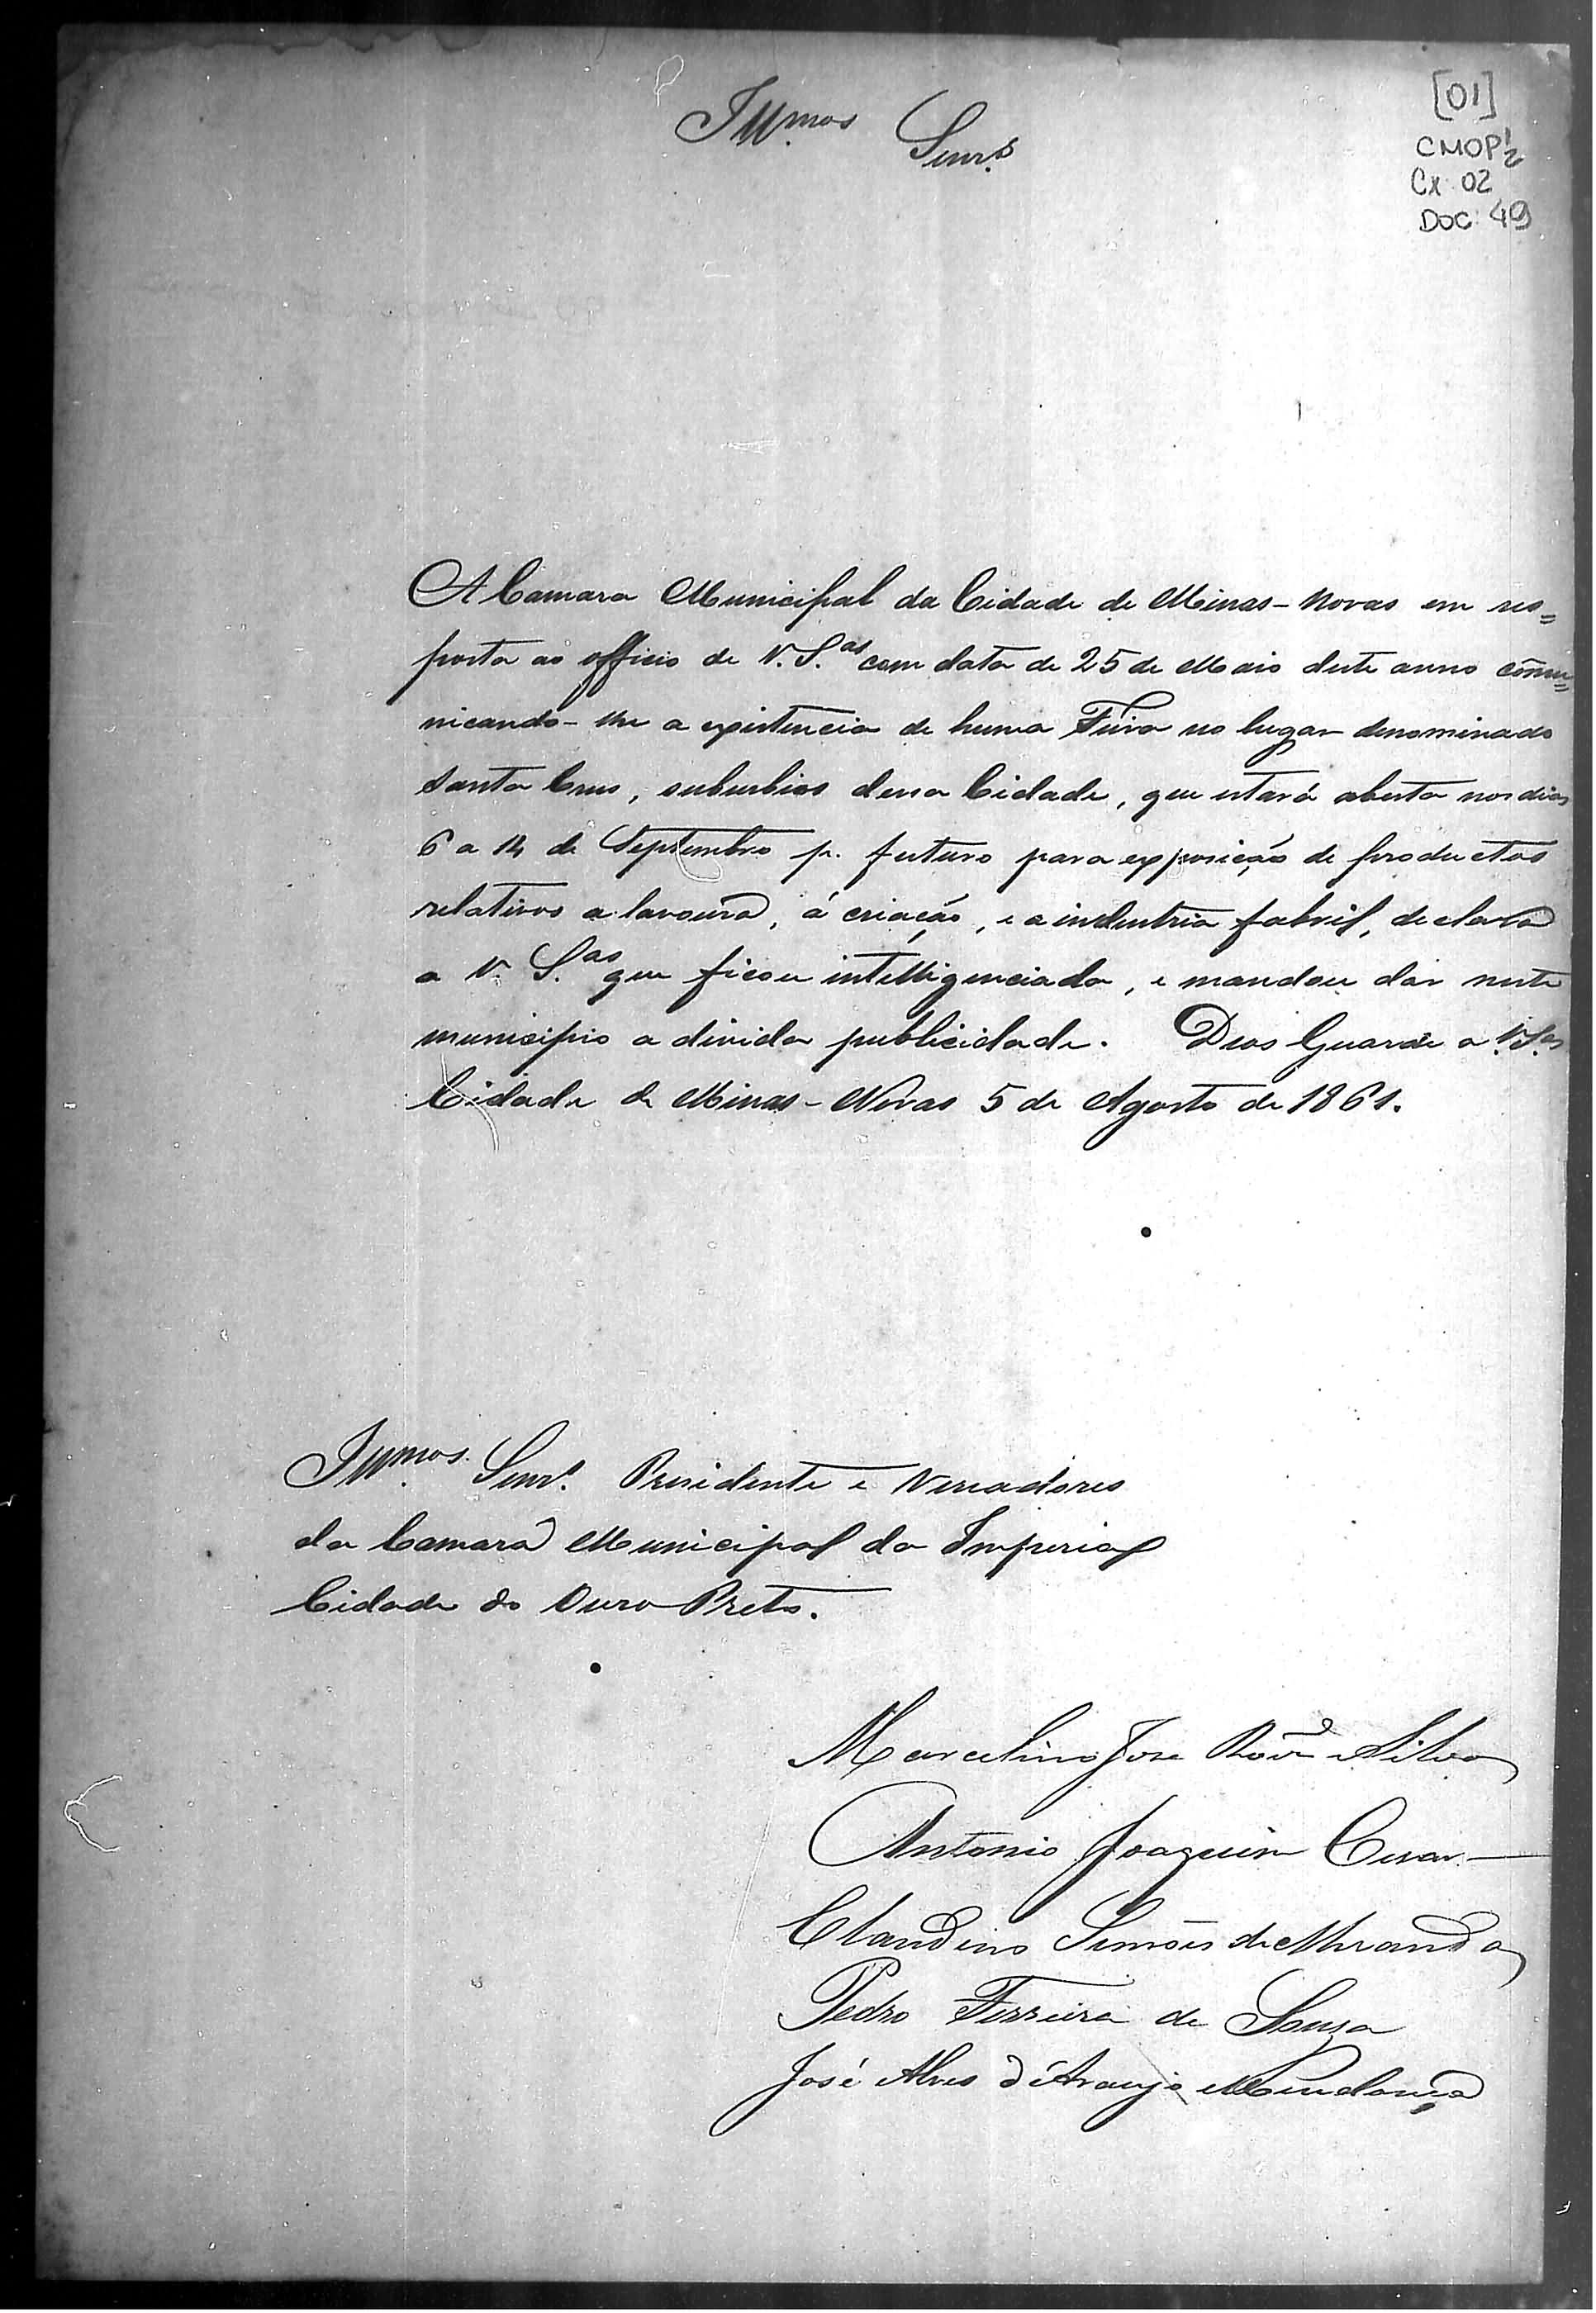 [01]
CMOP 1/2
Cx: 02
DOC: 49
Illmos Senrs
A Camara Municipal da Cidade de Minas-Novas em res=
posta ao officio de V. S.as com data de 25 de Maio deste anno cõmu=
nicando-lhe a existencia de huma Feira no lugar denominado
Santa Crus, suburbios dessa Cidade, que estará aberta nos dias
6 a 14 de Septembro p. futuro para exposição de productos
relativos a lavoura, á criação, e a industria fabril, declara
a V. S.as que ficou intelligenciada, e mandou dar neste
municipio a divida publicidade. Deos Guarde a V. S.as
Cidade de Minas-Novas 5 de Agosto de 1861.
Illmos. Senrs. Presidente e Vereadores
da Camara Municipal da Imperial
Cidade do Ouro Preto.
Marcelino Jose Roiz e Silva
Antonio Joaquim Cesar
Claudino Simões de Miranda
Pedro Ferreira de Souza
José Alves d'Araujo Mendonça